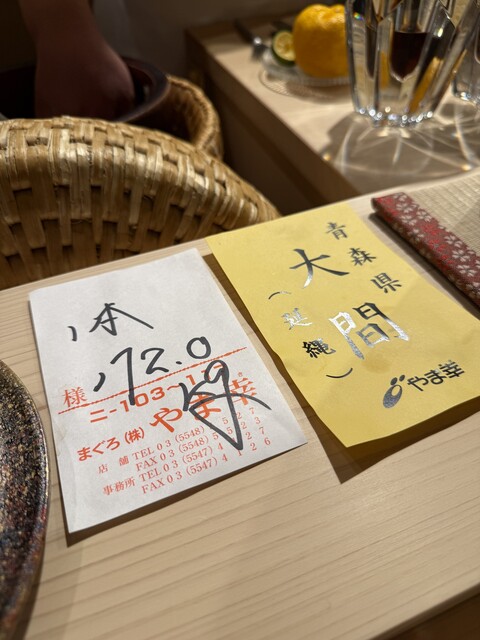 1本
172.0
様
ニ-103~1
まぐろ(株) やま幸
店舗 TEL 03(5548)
FAX 03(5548)
事務所 TEL 03(5547)
FAX 03(5547)
青森県
大間
(延縄)
やま幸